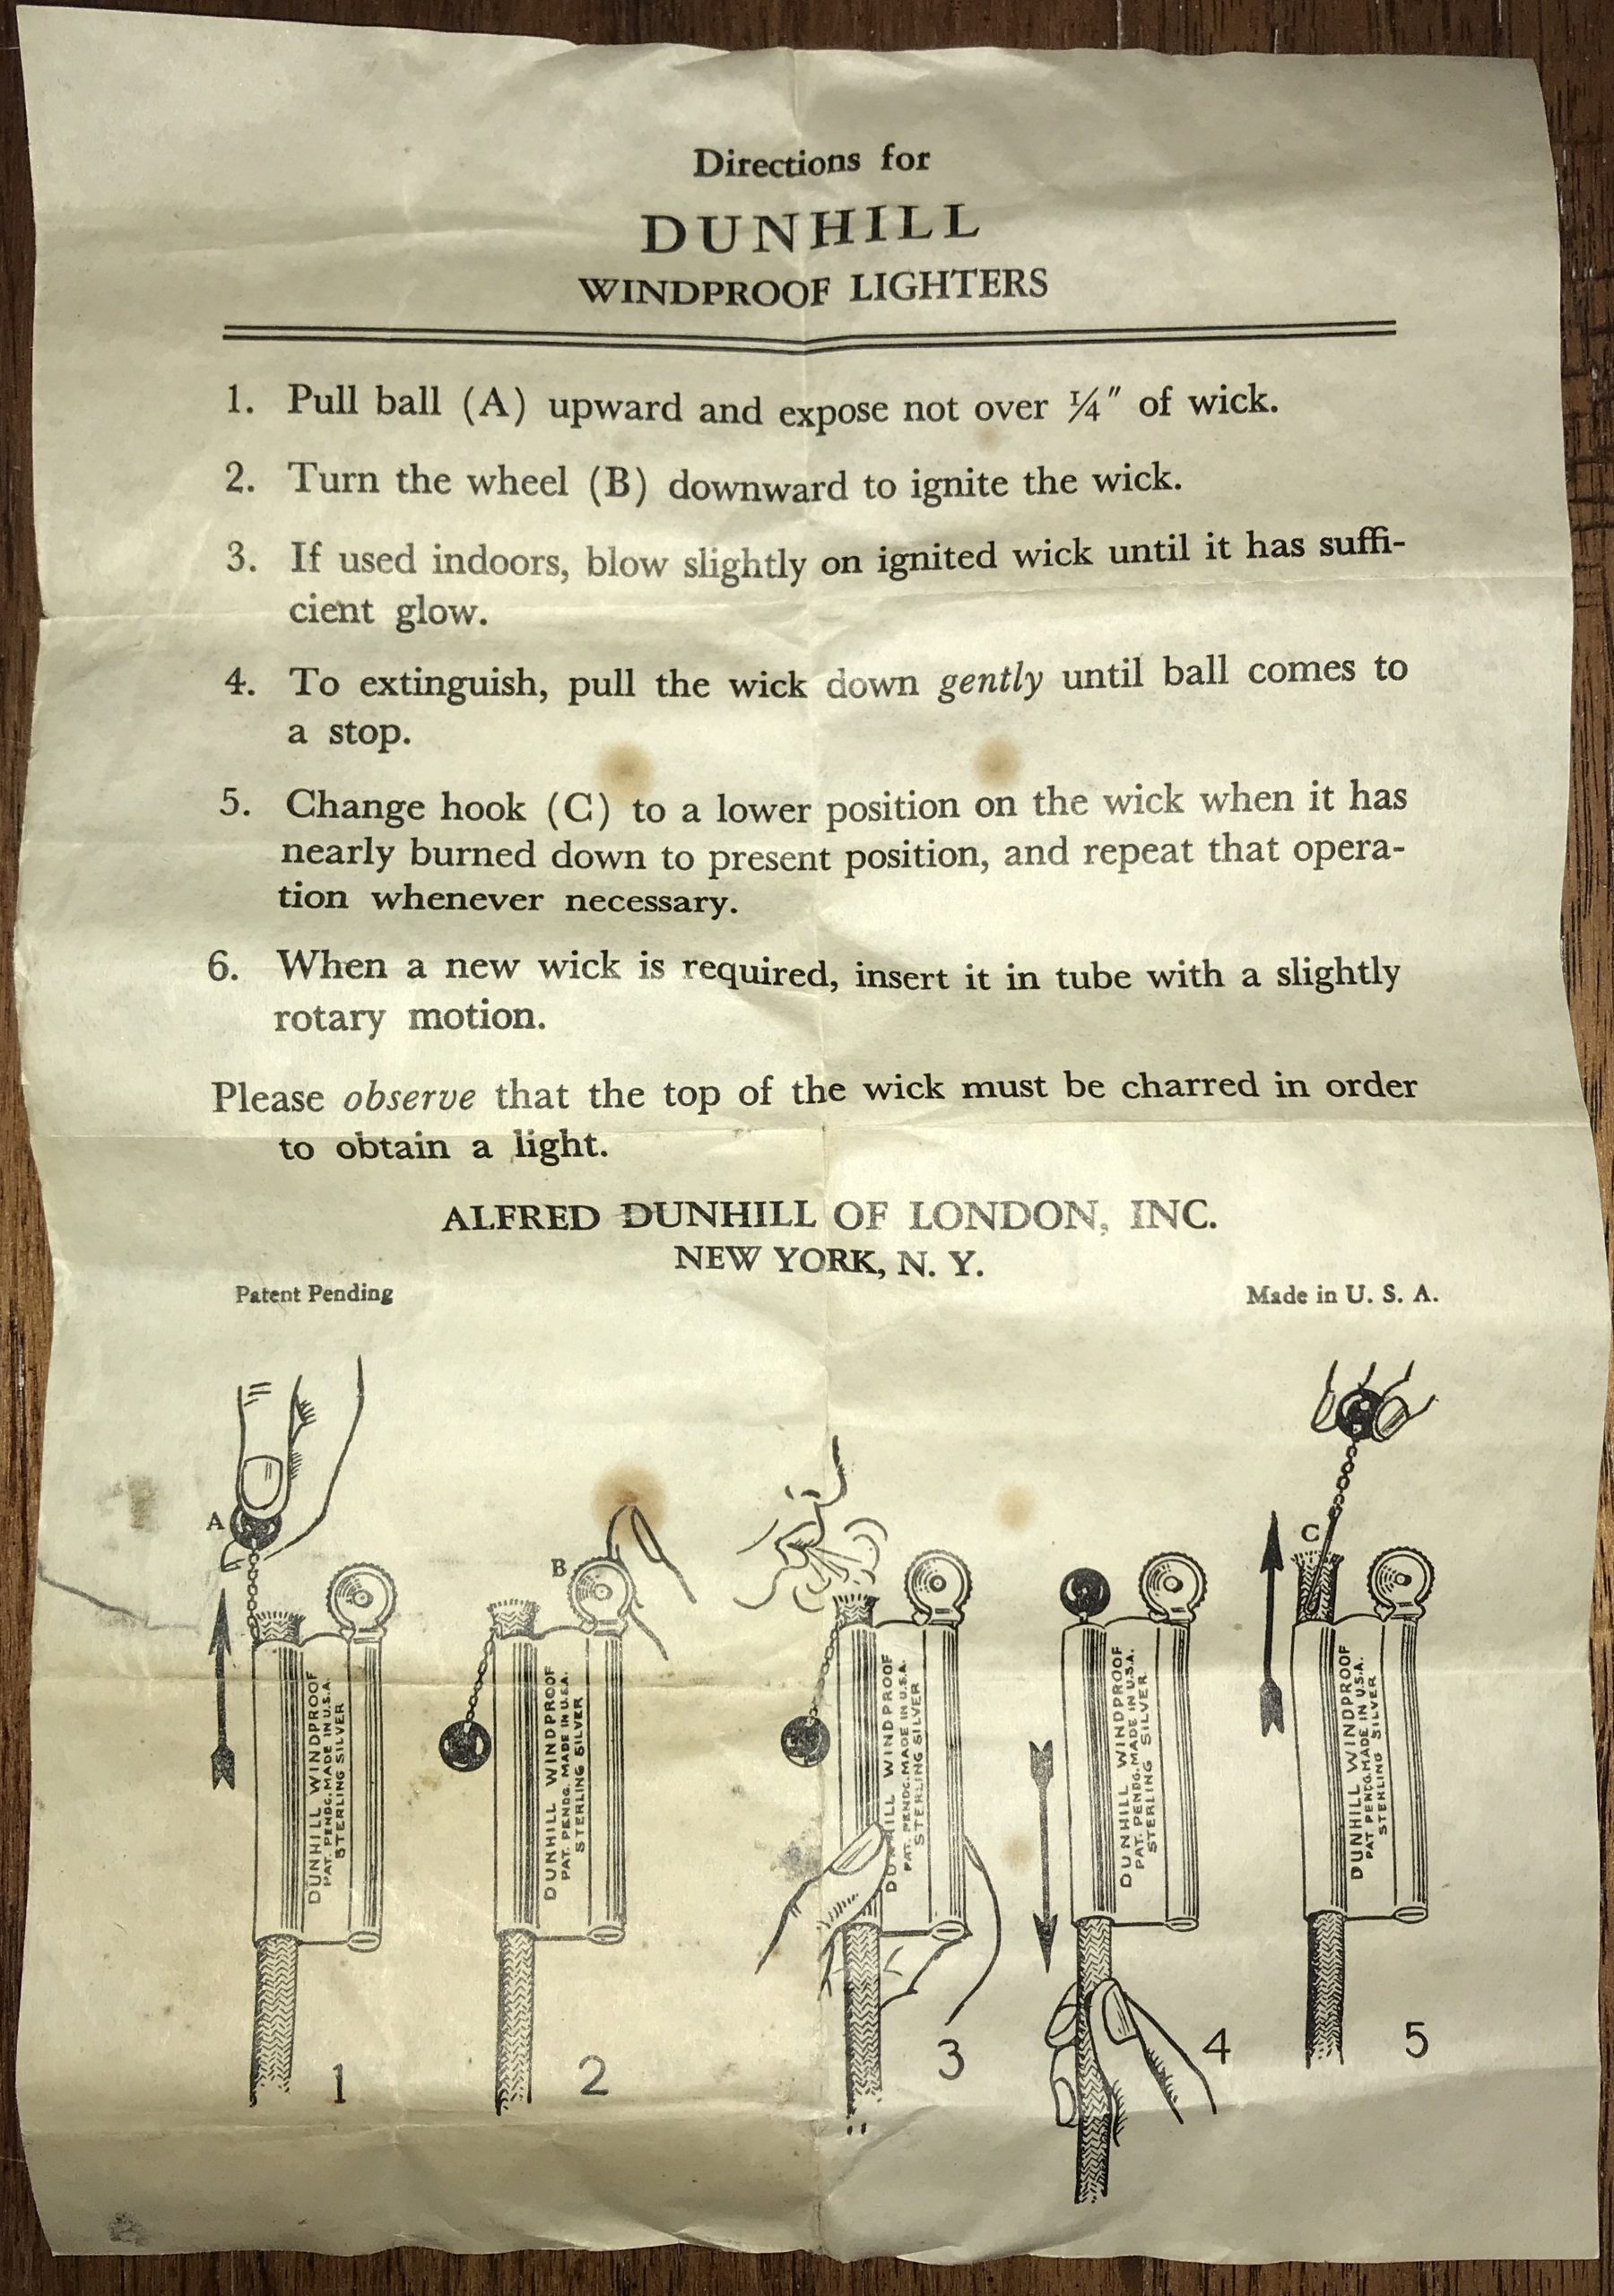 Directions for
DUNHILL
WINDPROOF LIGHTERS
1. Pull ball (A) upward and expose not over ¼″ of wick.
2. Turn the wheel (B) downward to ignite the wick.
3. If used indoors, blow slightly on ignited wick until it has suffi-
cient glow.
4. To extinguish, pull the wick down gently until ball comes to
a stop.
5. Change hook (C) to a lower position on the wick when it has
nearly burned down to present position, and repeat that opera-
tion whenever necessary.
6. When a new wick is required, insert it in tube with a slightly
rotary motion.
Please observe that the top of the wick must be charred in order
to obtain a light.
ALFRED DUNHILL OF LONDON, INC.
NEW YORK, N. Y.
Patent Pending
Made in U. S. A.
A
DUNHILL WINDPROOF
PAT. PENDG. MADE IN U.S.A.
STERLING SILVER
1
B
DUNHILL WINDPROOF
PAT. PENDG. MADE IN U.S.A.
STERLING SILVER
2
DUNHILL WINDPROOF
PAT. PENDG. MADE IN U.S.A.
STERLING SILVER
3
DUNHILL WINDPROOF
PAT. PENDG. MADE IN U.S.A.
STERLING SILVER
4
C
DUNHILL WINDPROOF
PAT PENDG. MADE IN U.S.A.
STERLING SILVER
5